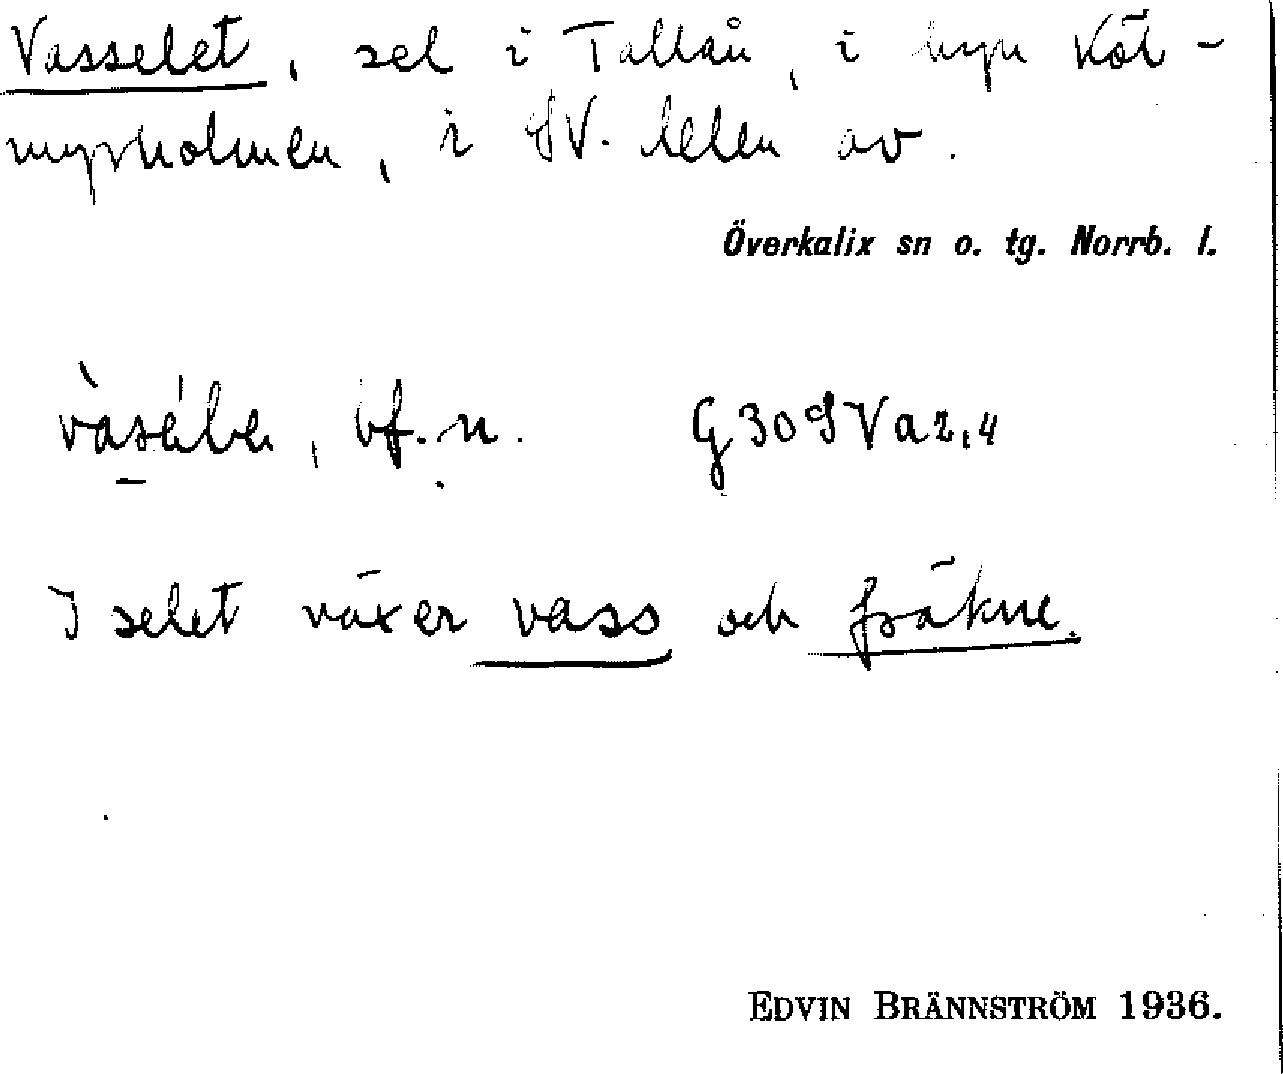 Vasselet, sel i Tallån, i byn Köt-
myrholmen, i SV. delen av.
Överkalix sn o. tg. Norrb. l.
bf. n. G 30 SV a 2,4
I selet växer vass och fräkne.
EDVIN BRÄNNSTRÖM 1936.